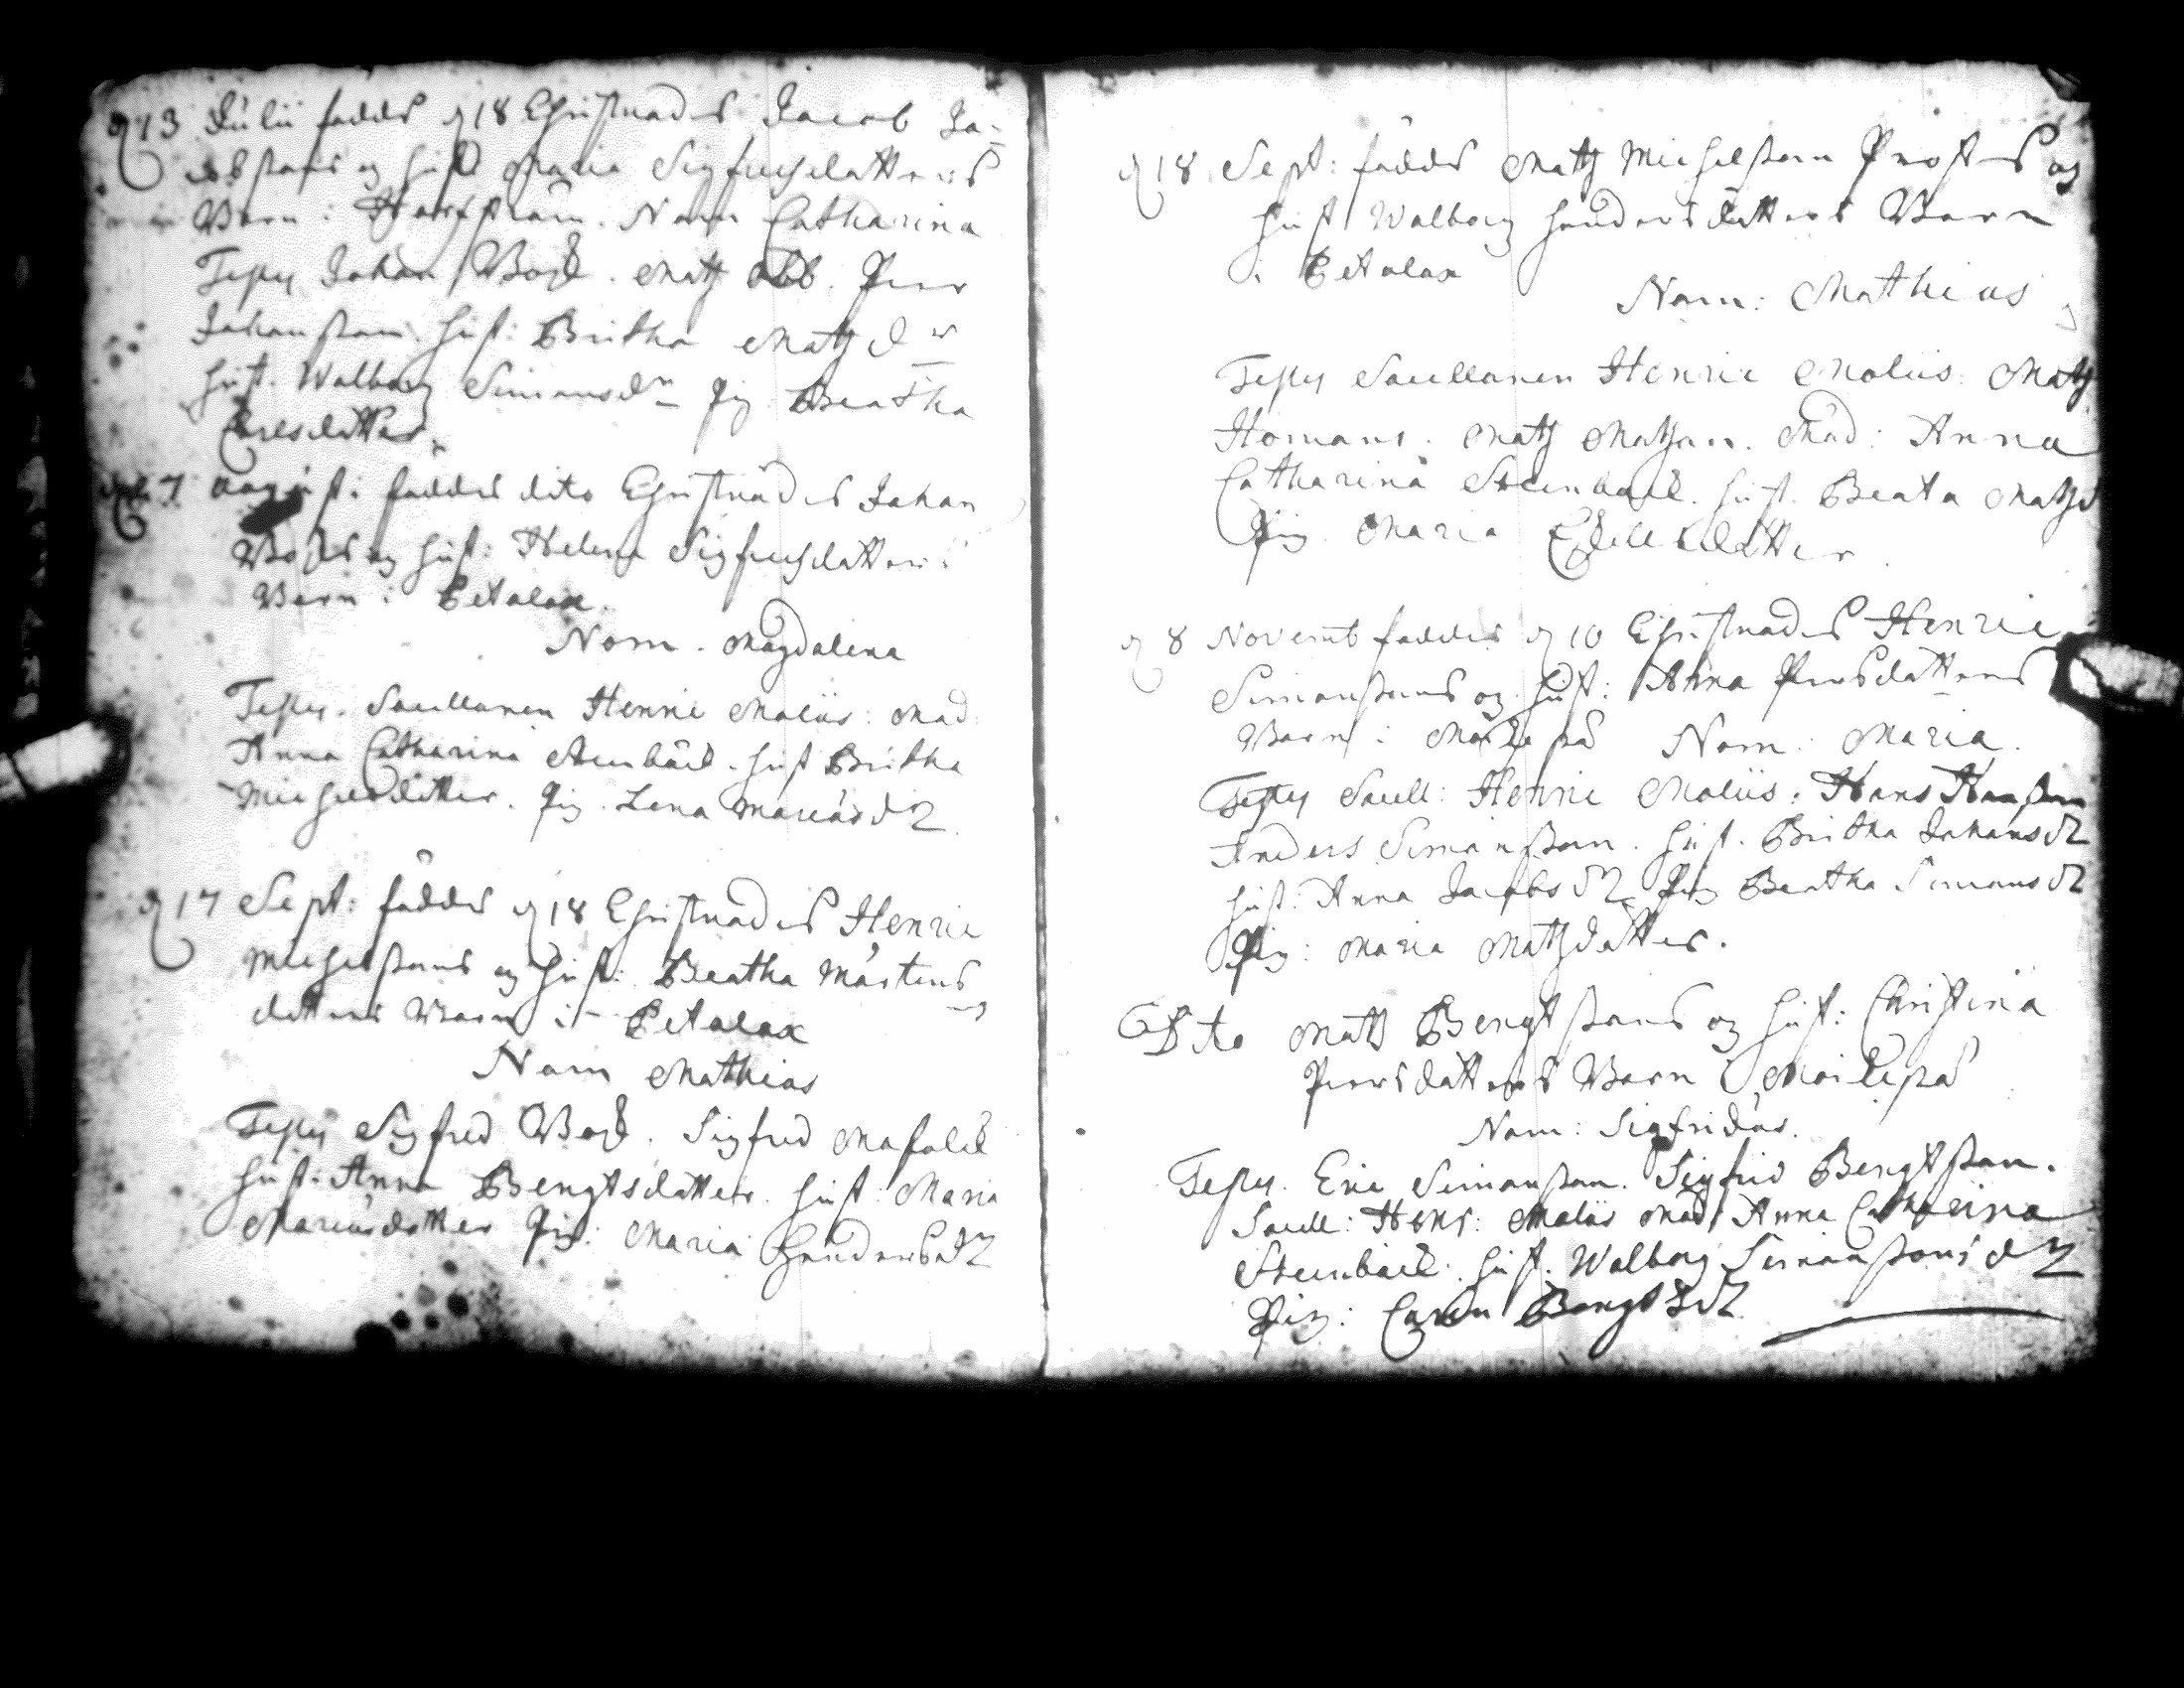 d 13 Julii föddes d 18 Christnades Jacob Ja-
cobssons og hust Maria Sigfredsdatters
Barn i Harfström. Nom Catharina
Testes Johan Bosk. Matz Abb. Peer
Johansson. hust: Britha Matzdr
hust. Walborg Simonsdr Pig Beatha
Carlsdatter.
7 August: föddes dito Christnades Johan
Bosks og hust: Helena Sigfredsdatters
Barn i Petalax.
Nom. Magdalena
Testes. Sacellanen Henric Moliis: Mad.
Anna Catharina Steenbäck. hust Britha
Michelsdatter. Pig. Lena Marcusdr
d 17 Sept: föddes d 18 Christnades Henric
Michelssons og hust: Beatha Mårtens
datters Barn i Petalax
Nom Mathias
Testes Sigfred Bosk. Sigfred
hust: Anna Bengtsdatter. hust: Maria
Marcusdotter Pig: Maria Hendersdr
d 18. Sept: föddes Matz Michelsson Prostes og
hust Walborg Hendersdatters Barn
i Petalax
Nom: Mathias
Testes Sacellanen Henric Moliis. Matz
Homans. Matz Matzon. Mad: Anna
Catharina Steenbäck. hust. Beata Matzd
Pig. Maria
d 8 Novemb föddes d 10 Christnades Henric
Simonssons og hust: Anna Peersdatters
Barn i Nom: Maria.
Testes Sacell: Henric Moliis. Hans Hansson
Anders Simonsson. hust. Britha Johansdr
hust: Anna Jacobsdr Pig Beatha Simonsdr
Pig: Maria Matzdatter.
Dito Matts Bengtssons og hust: Christina
Peersdatters Barn i
Nom: Sigfridus.
Testes. Eric Simonsson. Sigfrid Bengtsson.
Sacell: Henr: Moliis Mad Anna Catharina
Steenbäck. hust. Walborg Simonssons dr
Pig: Carin Bengtzdr